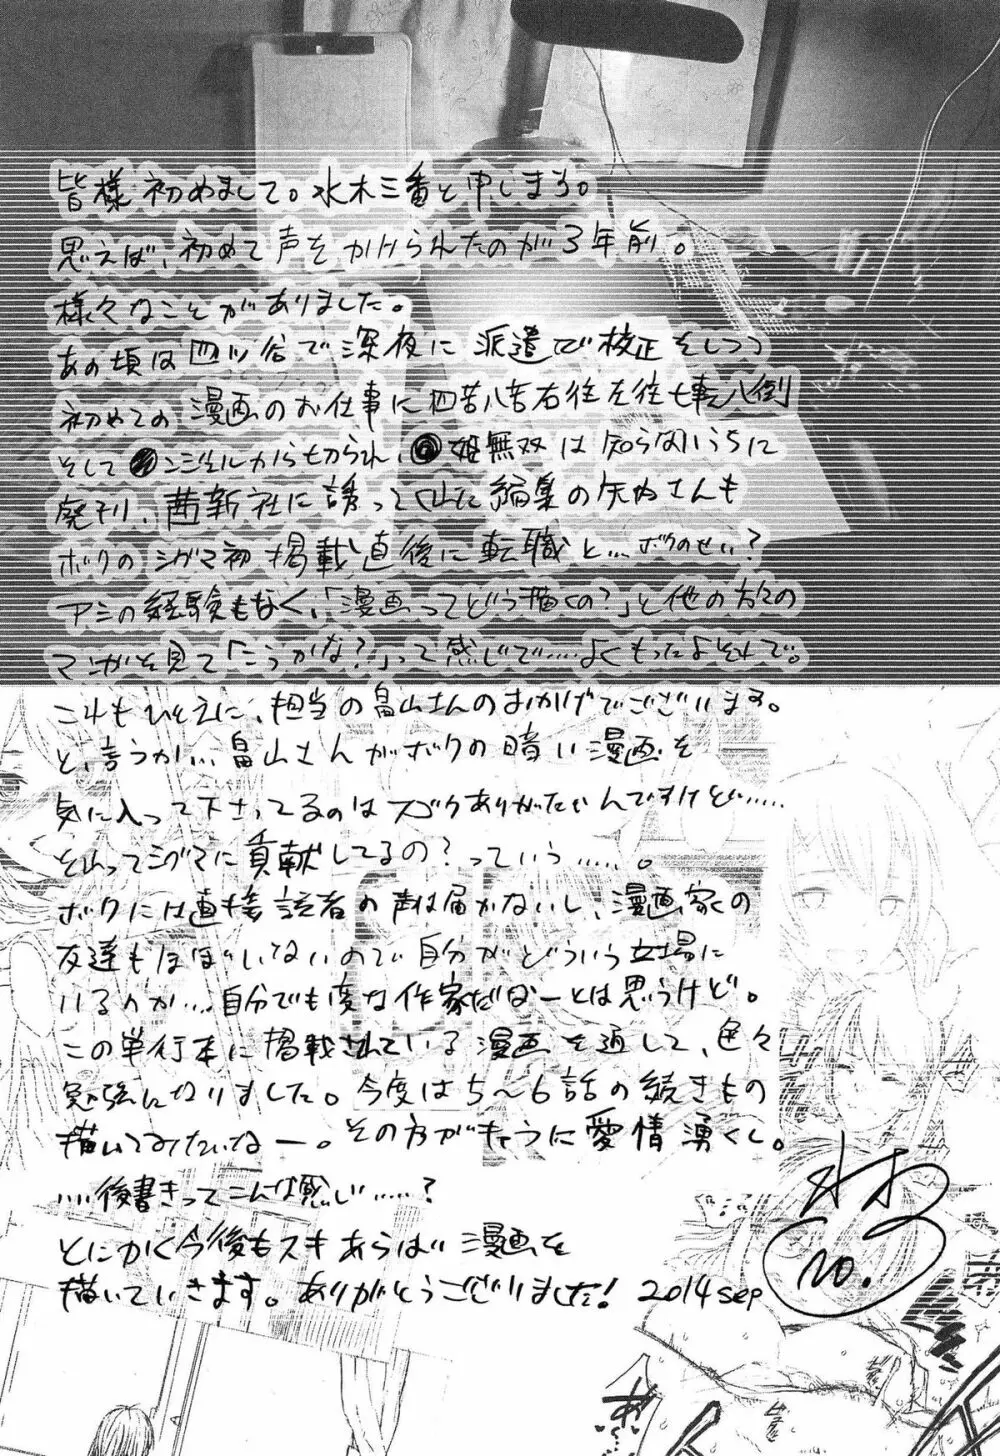 皆様初めまして。水木三番と申します。
思えば、初めて声をかけられたのが3年前。
様々なことがありました。
あの頃は四ツ谷で深夜に派遣で校正をしつつ
初めての漫画のお仕事に四苦八苦右往左往七転八倒
そして●ンジェルから切られ、●姫無双は知らないうちに
廃刊、茜新社に誘ってくれた編集の矢内さんも
ボクのシグマ初掲載直後に転職と…ボクのせい?
アシの経験もなく、「漫画ってどう描くの?」と他の方々の
マンガを見て「こうかな?」って感じで……よくもったよそれで。
これもひとえに、担当の畠山さんのおかげでございます。
と、言うか…畠山さんがボクの暗い漫画を
気に入って下さってるのはスゴクありがたいんですけど……
それってシグマに貢献してるの?っていう……。
ボクには直接読者の声は届かないし、漫画家の
友達もほぼいないので自分がどういう立場に
いるのか…自分でも変な作家だなーとは思うけど。
この単行本に掲載されている漫画を通して、色々
勉強になりました。今度は5～6話の続きもの
描いてみたいなー。その方がキャラに愛情湧くし。
……後書きってこんな感じ……?
とにかく今後もスキあらば漫画を
描いていきます。ありがとうございました! 2014 sep
水木
NO.